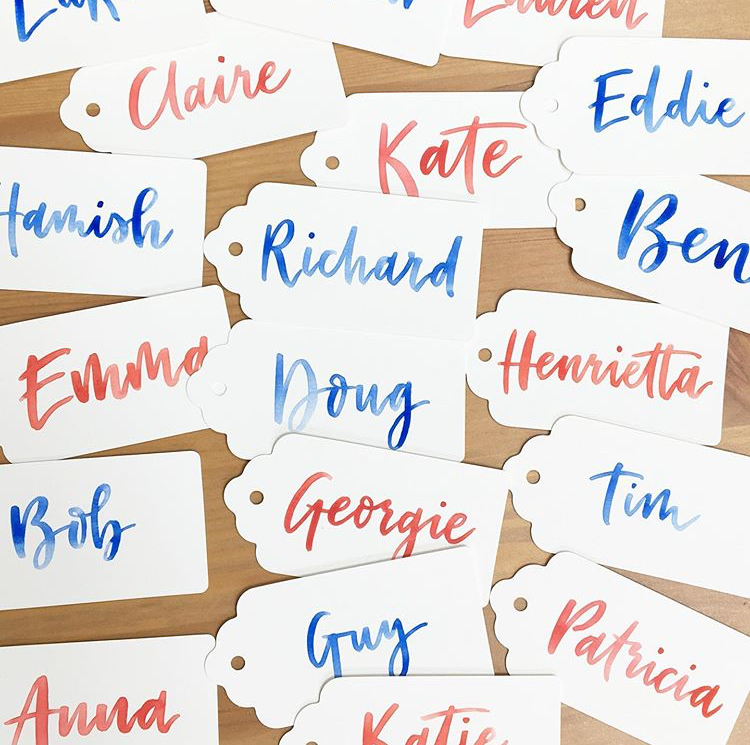 Lauren
Claire
Eddie
Kate
Hamish
Richard
Ben
Emma
Doug
Henrietta
Bob
Georgie
Tim
Guy
Patricia
Anna
Katie